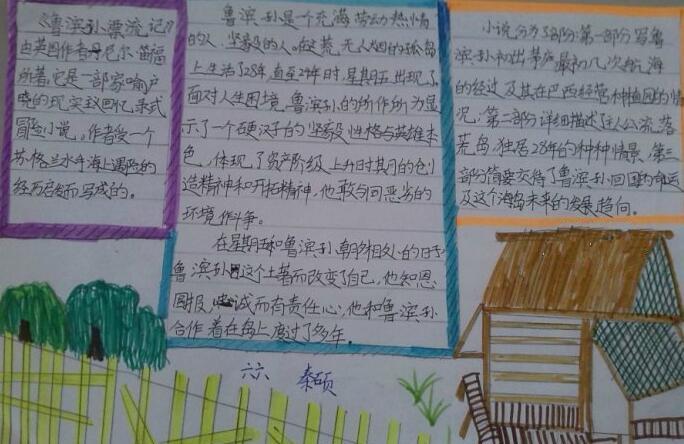 《鲁滨孙漂流记》
由英国作者丹尼尔·笛福
所著。它是一部家喻户
晓的现实主义回忆录式
冒险小说。作者受一个
苏格兰水手海上遇险的
经历启发而写成的。
鲁滨孙是个充满劳动热情
的人，坚毅的人。在这荒无人烟的孤岛
上生活了28年。直至24年时，星期五出现了
面对人生困境，鲁滨孙的所作所为显
示了一个硬汉子的坚毅性格与英雄本
色，体现了资产阶级上升时其月的创
造精神和开拓精神，他敢与同恶劣的
环境作斗争。
在星期五和鲁滨孙朝夕相处的日子
鲁滨孙因这个土著而改变了自己，他知恩
图报，忠诚而有责任心，他和鲁滨孙
合作着在岛上度过了多年。
小说分为3部分:第一部分写鲁
滨孙初出茅庐，最初几次航海
的经过及其在巴西经营种植园的情
况；第二部分详细描述主人公流落
荒岛，独居28年的种种情景，第三
部分简要交待了鲁滨孙回国的命运
及这个海岛未来的发展趋向。
六六 秦硕